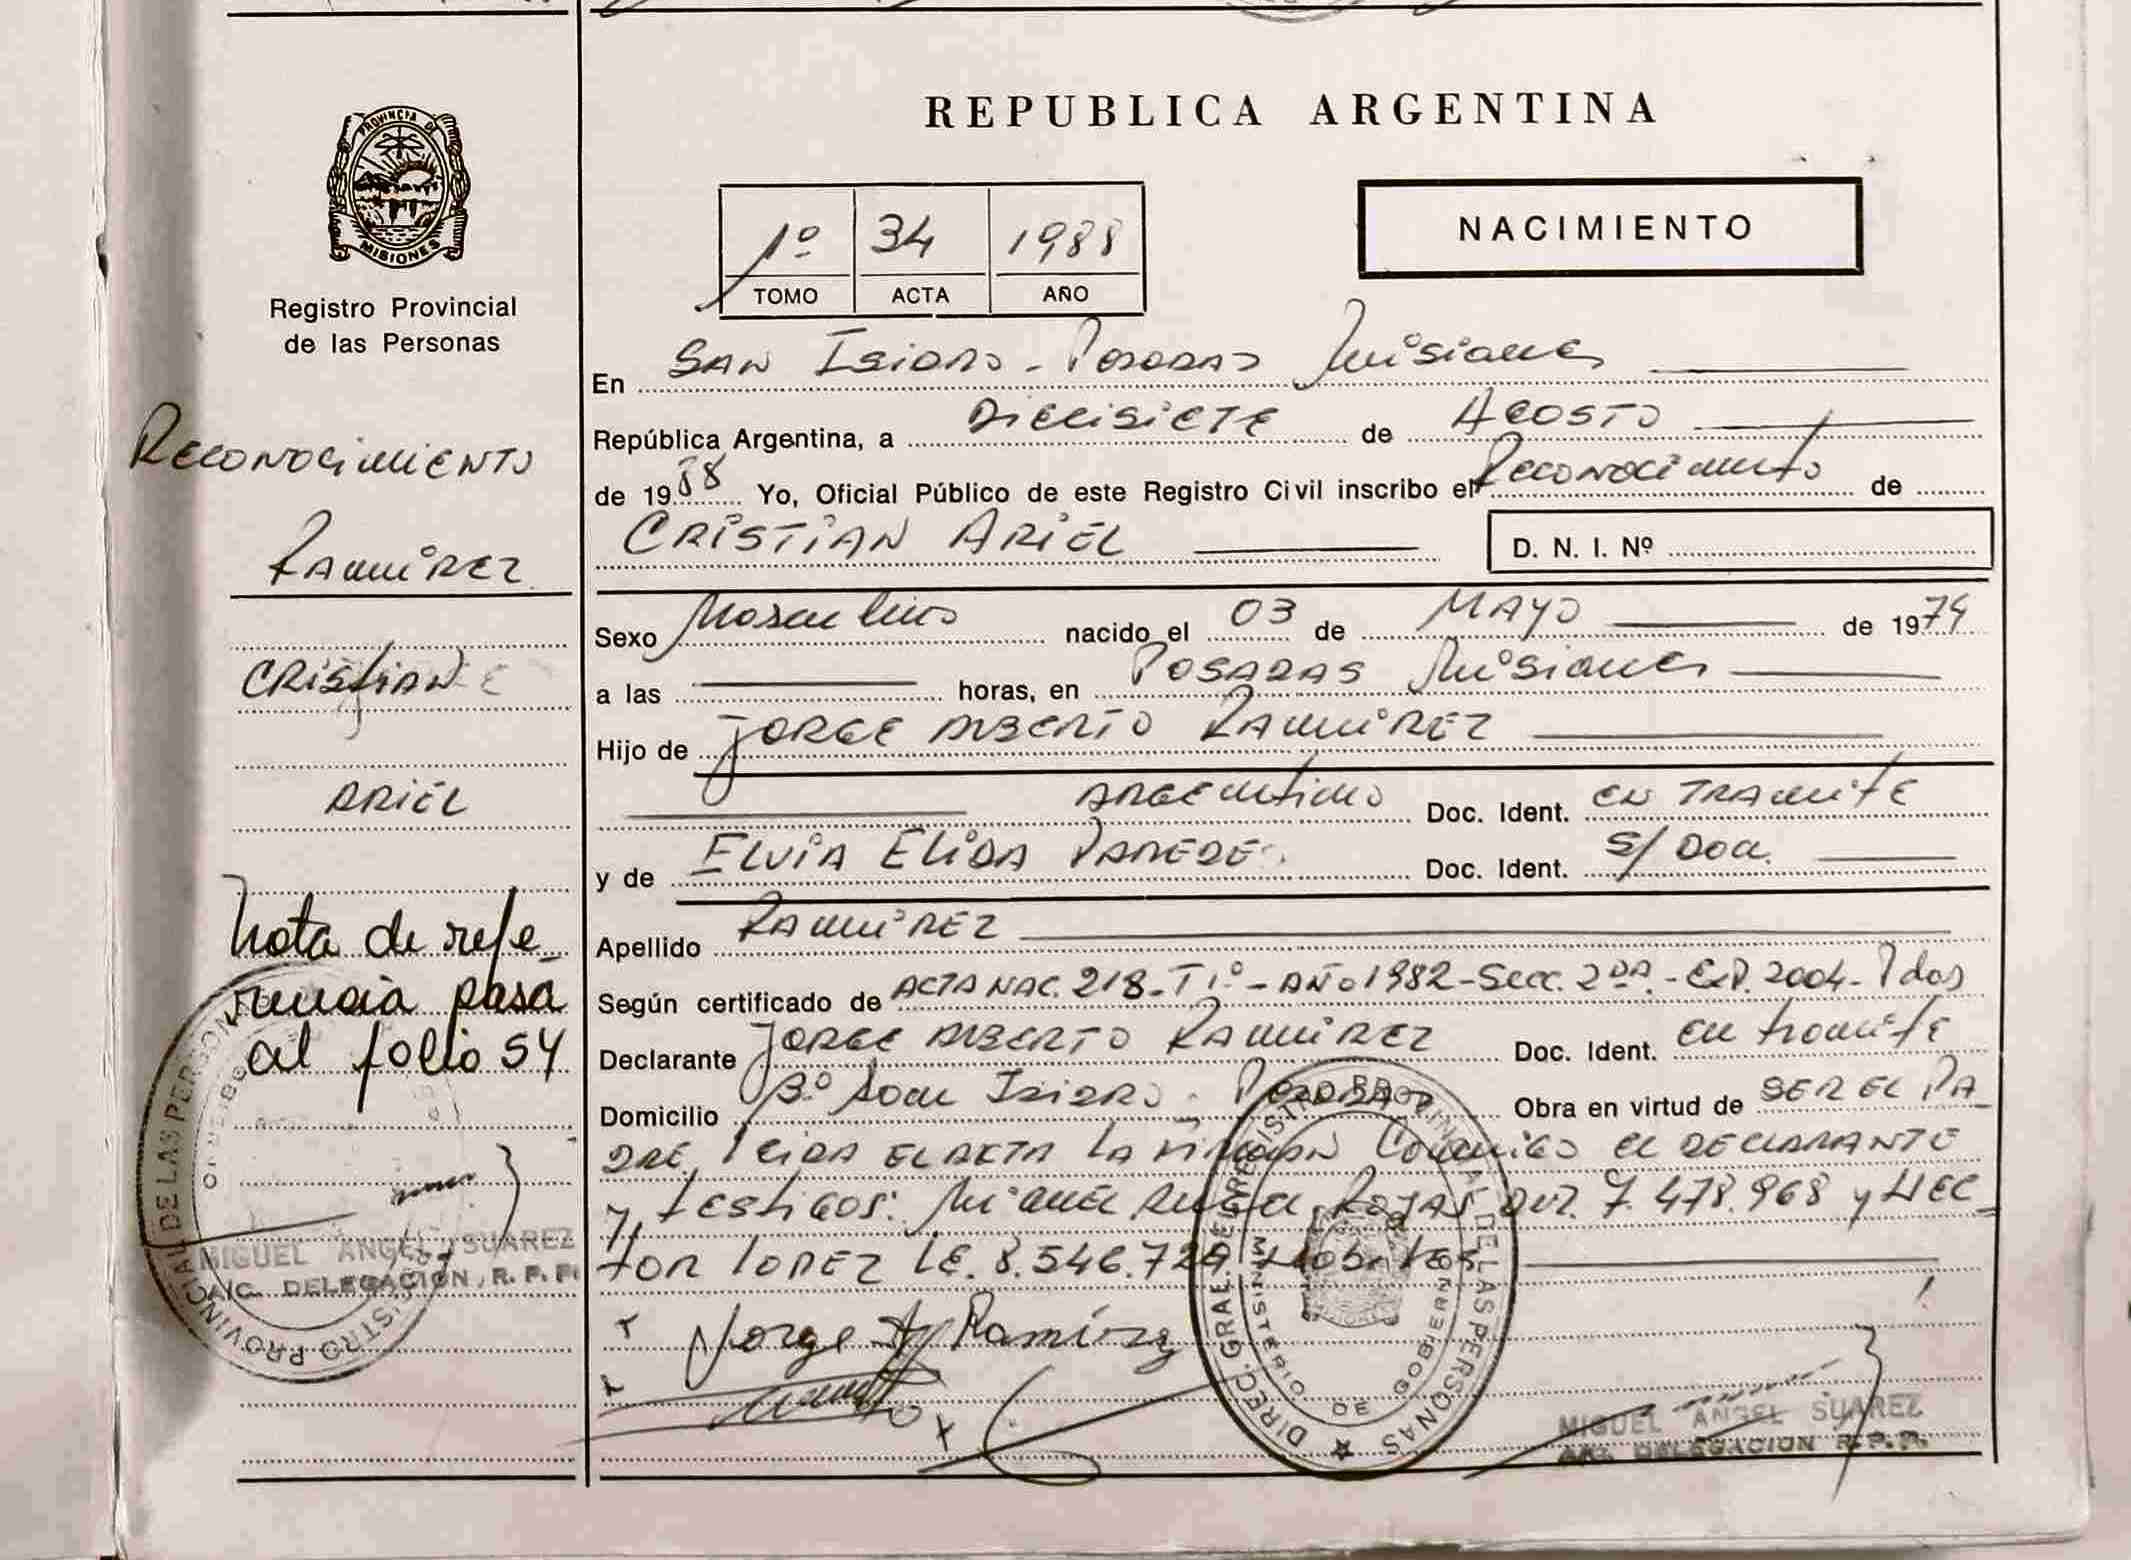 PROVINCIA DE
MISIONES
Registro Provincial
de las Personas
Reconocimiento
Ramirez
Cristian
Ariel
Nota de refe
rencia pasa
al folio 54
MIGUEL ANGEL SUAREZ
A/C. DELEGACION, R. P. P.
REGISTRO PROVINCIAL DE LAS PERSONAS
REPUBLICA ARGENTINA
1º 34 1988
TOMO ACTA AÑO
NACIMIENTO
En San Isidro - Posadas Misiones
República Argentina, a Diecisiete de Agosto
de 1988 Yo, Oficial Público de este Registro Civil inscribo el Reconocimiento de
Cristian Ariel D. N. I. Nº
Sexo Masculino nacido el 03 de Mayo de 1974
a las horas, en Posadas Misiones
Hijo de Jorge Alberto Ramirez
Argentino Doc. Ident. en tramite
y de Elvia Elida Paredes Doc. Ident. S/ Doc.
Apellido Ramirez
Según certificado de Acta Nac. 218 - T 1º - Año 1982 - Secc. 2da. - Exp. 2004 - Pdas
Declarante Jorge Alberto Ramirez Doc. Ident. en tramite
Domicilio Bº San Isidro - Posadas Obra en virtud de ser el pa
dre, leida el acta la firman conmigo el declarante
y testigos: Miguel Rojas 7.478.968 y Hec
tor Lopez LE. 8.546.729
Jorge A Ramírez
DIREC. GRAL. DE REGISTRO PROVINCIAL DE LAS PERSONAS
MINISTERIO DE GOBIERNO
MIGUEL ANGEL SUAREZ
A/C. DELEGACION R. P. P.